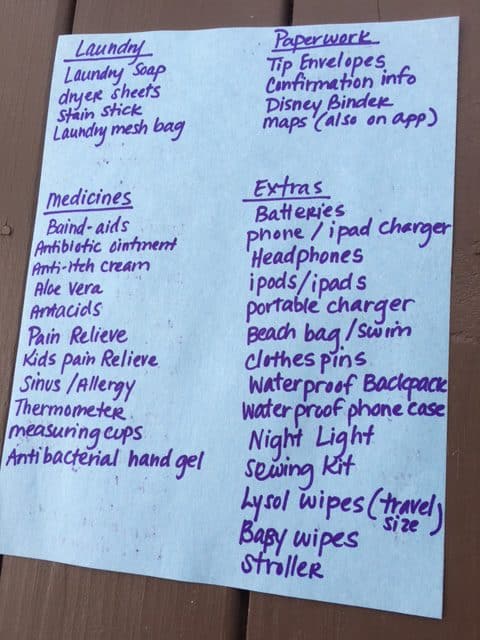 Laundry
Laundry Soap
dryer sheets
Stain stick
Laundry mesh bag
Paperwork
Tip Envelopes
Confirmation info
Disney Binder
maps (also on app)
Medicines
Baind-aids
Antibiotic ointment
Anti-itch cream
Aloe Vera
Antacids
Pain Relieve
Kids pain Relieve
Sinus/Allergy
Thermometer
measuring cups
Antibacterial hand gel
Extras
Batteries
phone / ipad charger
Headphones
ipods/ipads
portable charger
Beach bag/swim
clothes pins
Waterproof Backpack
Waterproof phone case
Night Light
Sewing Kit
Lysol wipes (travel size)
Baby wipes
Stroller